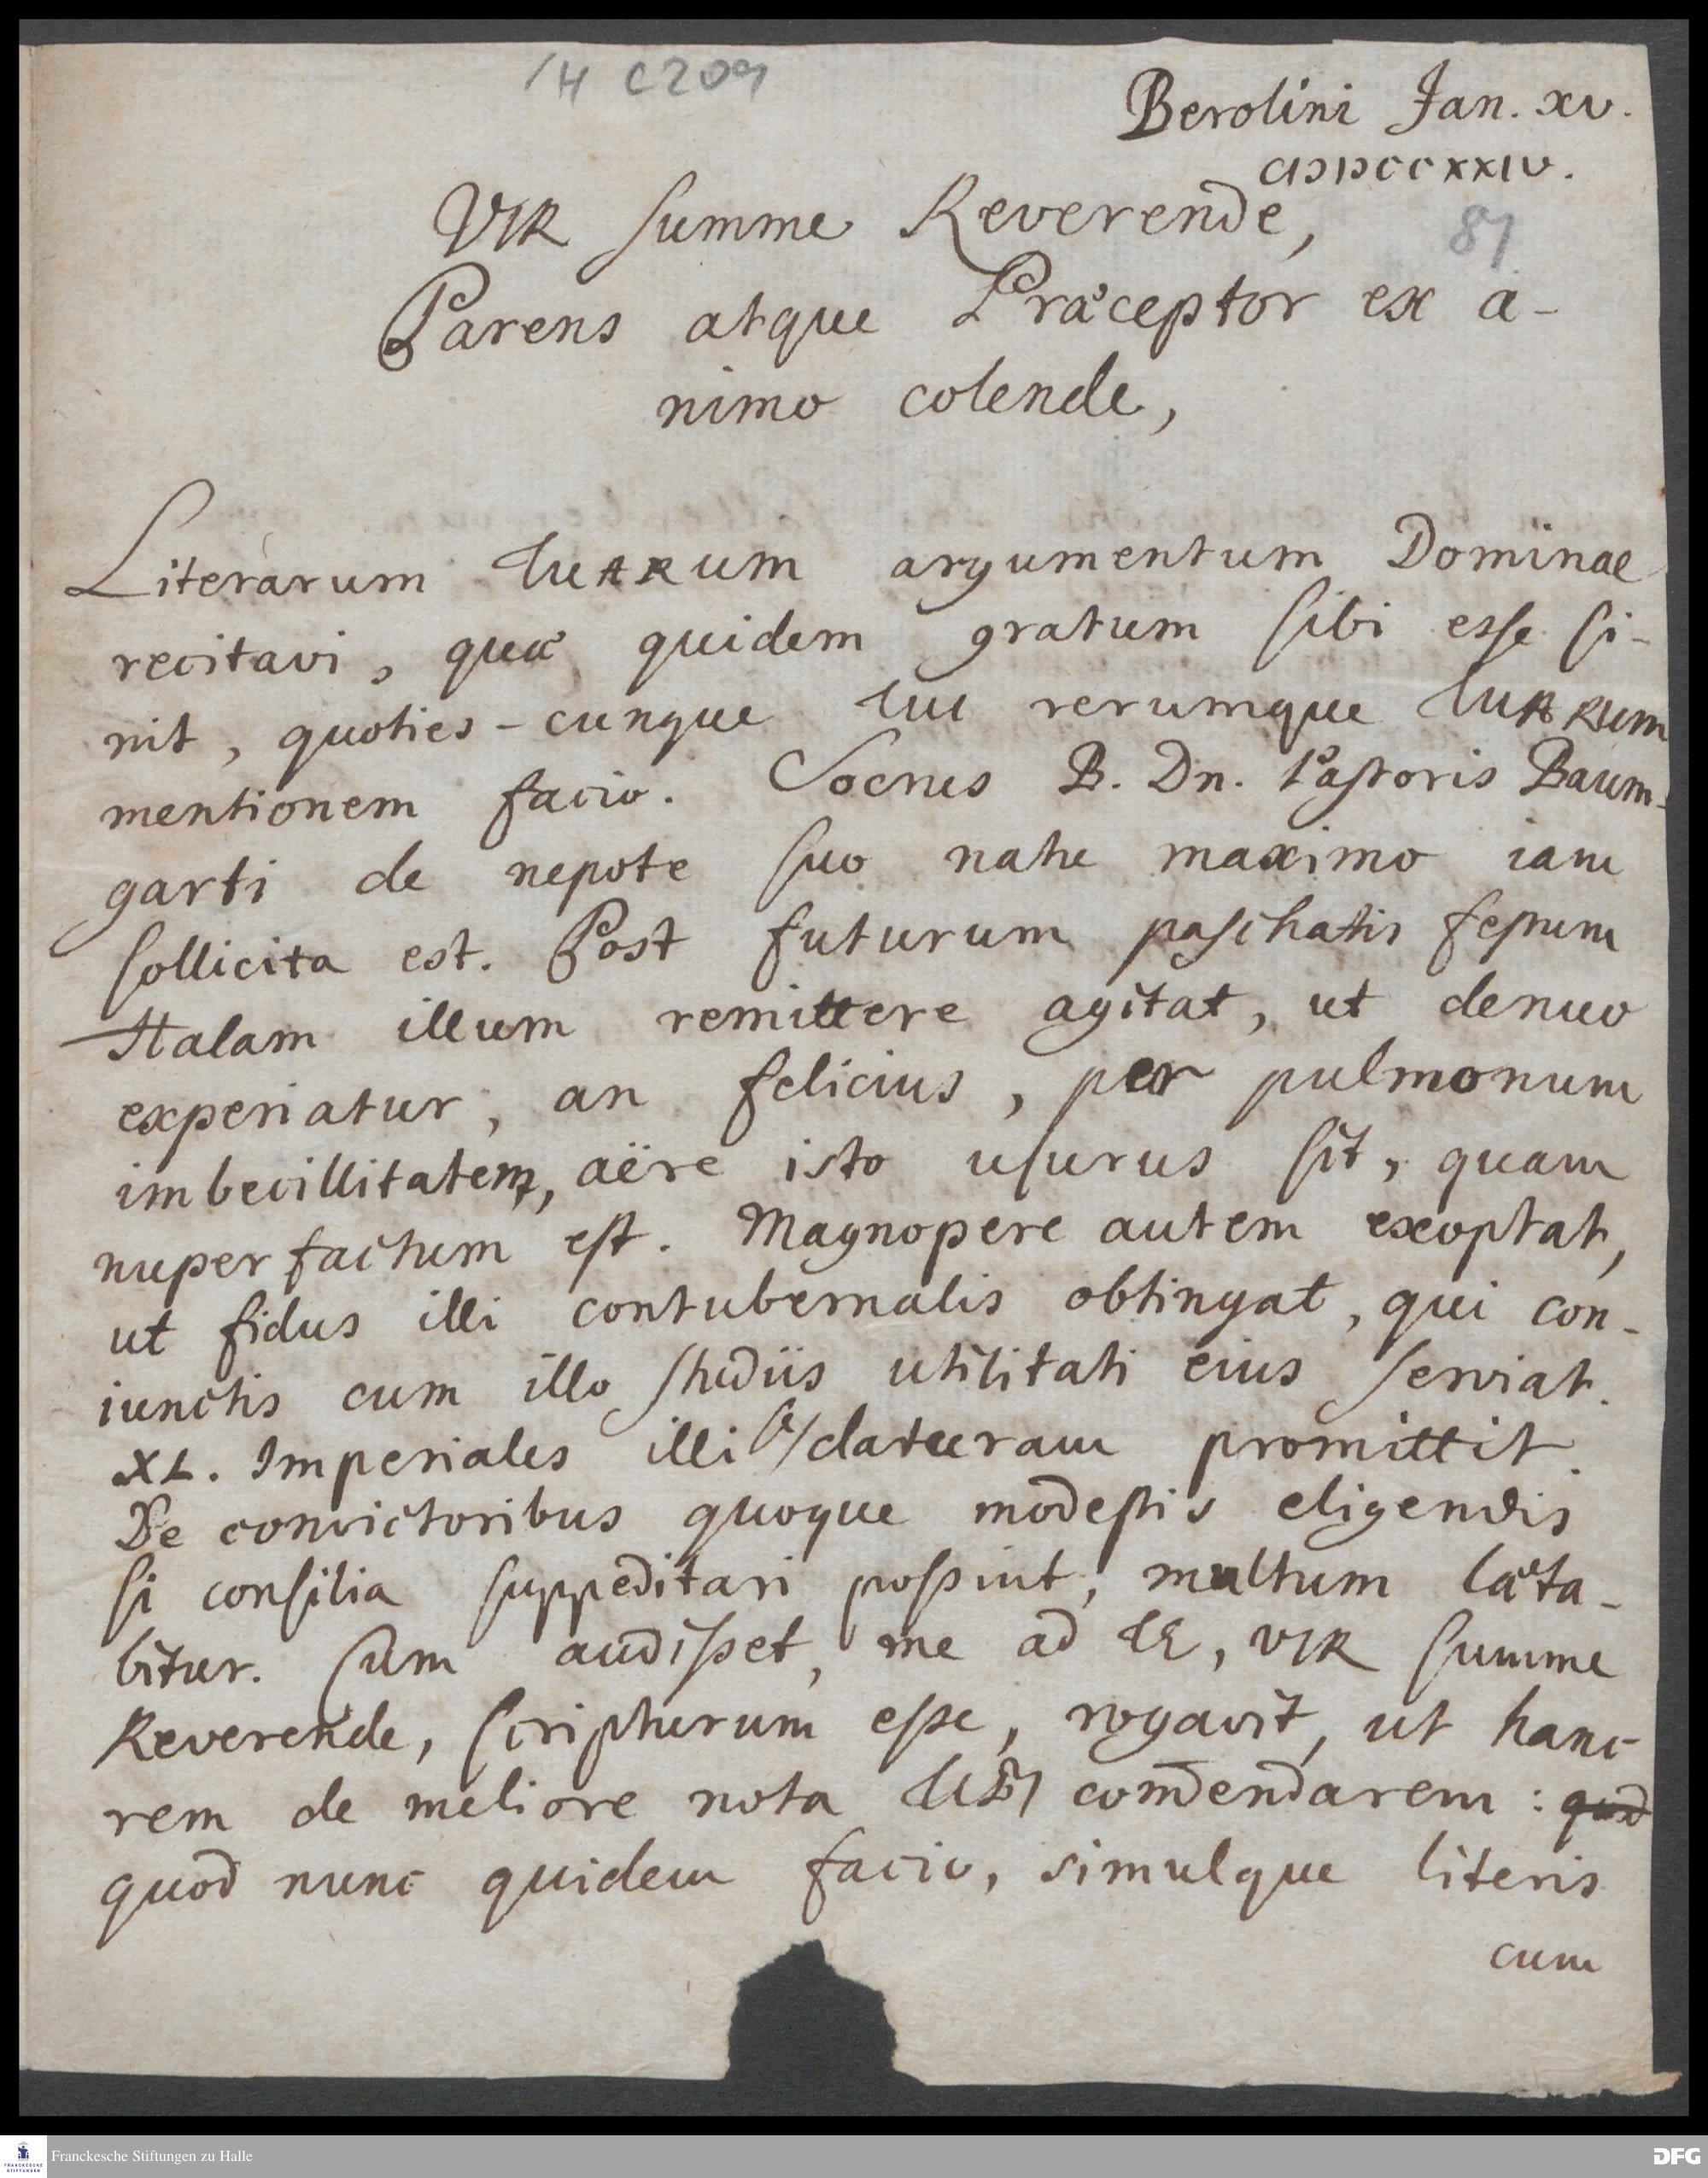 /H C209
Berolini Jan. xv.
CIↃIↃCCXXIV.
VIR summe Reverende,
81
Parens atque Præceptor ex a-
nimo colende,
Literarum TuARum argumentum Dominae
recitavi, quæ quidem gratum sibi esse si-
nit, quoties-cunque TUI rerumque TuARum
mentionem facio. Socrus B. Dn. Pastoris Baum-
garti de nepote suo natu maximo iam
sollicita est. Post futurum paschatis festum
Halam illum remittere agitat, ut denuo
experiatur, an felicius, per pulmonum
imbecillitatem, aëre isto usurus sit, quam
nuper factum est. Magnopere autem exoptat,
ut fidus illi contubernalis obtingat, qui con-
iunctis cum illo studiis utilitati eius serviat.
XL. Imperiales illi se/daturam promittit.
De convictoribus quoque modestis eligendis
si consilia suppeditari possint, multum læta-
bitur. Cum audisset, me ad TE, VIR summe
Reverende, scripturum esse, rogavit, ut hanc
rem de meliore nota TIBI com̄endarem: quod
quod nunc quidem facio, simulque literis
cum
Franckesche Stiftungen zu Halle
FRANCKESCHE
STIFTUNGEN
DFG